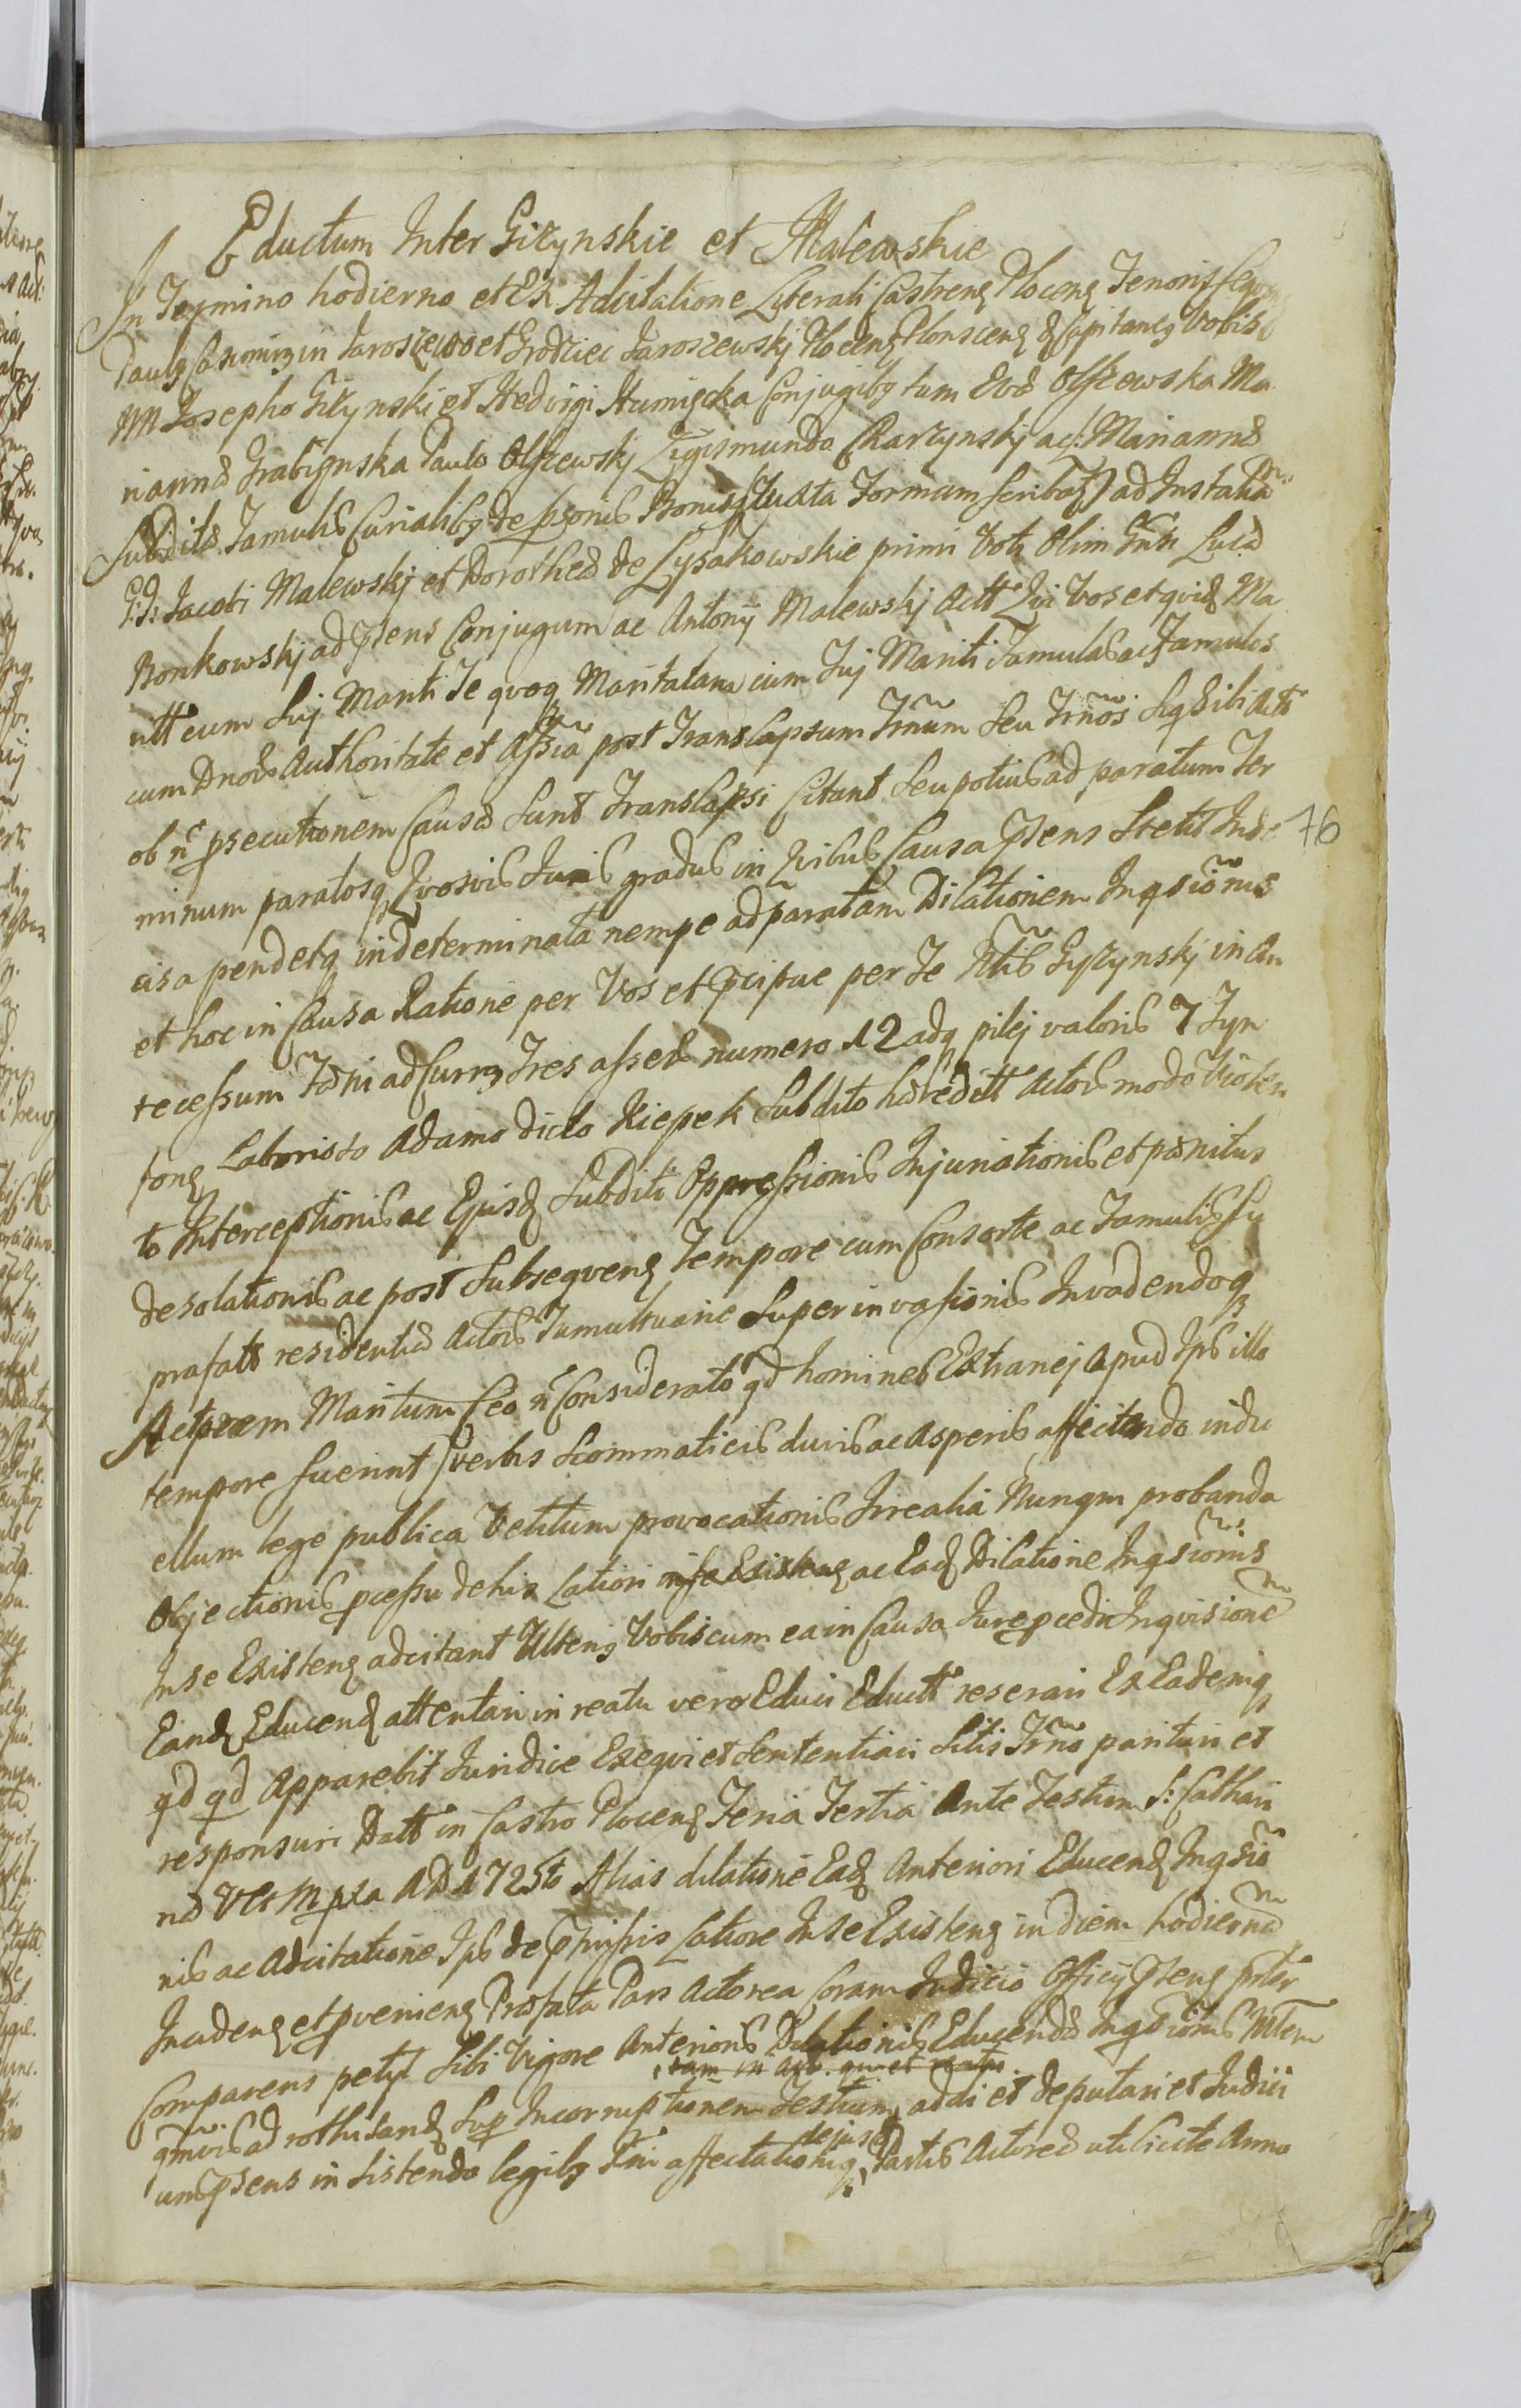 Eductum Inter Giżynskie et Malewskie
In Termino hodierno et Ex Adcitatione Literali Castrenꝫ Plocenꝫ Tenoris
Paulꝯ Casimirꝯ in Jaroszewo et Grodziec Jaroszewskj Plocenꝫ Plonscenꝫ & Capitaneꝯ Vobis
MM Josepho Giżynski et Hedvigi Humięcka Conjugibꝯ tum Evæ Olszewska Ma
riannæ Grabignska Paulo Olszewskj Zigismundo Charzynskj ac: Mariannæ
Subditæ Famulis Curialibꝯ de psonis Bonis (Juxta Formam scribatꝫ) ad Instatia
G: J: Jacobi Malewskj et Dorotheæ de Lysakowskie primi Voti Olim Gnsi Lucæ
Bonkowskj ad psens Conjugum ac Antonij Malewskj Actt Qui Vos et qvidꝫ Ma
ritt cum Suj Mariti Te qvoqꝫ Maritatam cum Tuj Mariti Famulas ac Famulos
cum Dnoris Authoritate et Assia post Translapsum Trnum Seu Trnos Sigbili Actt
ob n psecutionem Causæ Sunt Translapsi Citant Seu potius ad paratum Ter
minum paratosqꝫ Qvosvis Juris gradus in Qvibus Causa psens Stetit Inde
cisa pendetqꝫ indeterminata nempe ad paratam Dilationem Inqsionis
et hoc in Causa Ratione per Vos et pcipue per Te Gyżynskj in An
tecessum Fori ad Currꝫ Tres asseres numero 12 adqꝫ pilej valoris 7 Tyn
fonꝫ Laborioso Adamo dicto Kiepek Subdito hæreditt Actoris modo Violen
to Interceptionis ac Ejusdꝫ Subditi Oppressionis Injuriationis et pænitus
desolationis ac post Subseqvenꝫ Tempore cum Consorte ac Famulis Su
præfatt residentiæ Actoris Tumultuarie Superinvasionis Invadendoqꝫ
Actricem Maritum Eeo n Considerato qd homines Extranej Apud Ips illo
tempore fuerint Verbis Scommaticis duris ac Asperis affectando indu
ellum lege publica Vetitum provocationis Irrealia Nunqm probanda
Objectionis pcessu de his Latiori in se Existenꝫ ac Eadꝫ Dilatione Inqsionis
In se Existenꝫ adcitant Ulteriꝯ Vobiscum ea in Causa Jure pcedi Inqvisione
Eandꝫ Educendꝫ attentari in reatu vero Educi Eductt reserari Ex Eademqꝫ
qd qd Apparebit Juridice Exeqvi et Sententiari Sitis Trno parituri et
responsuri Datt in Castro Plocenꝫ Feria Tertia Ante Festum S: Cathari
næ V et M pxa AD 1725to Alias dilatione Eadꝫ Anteriori Educendꝫ Inqsio
nis ac Adcitatione Ips de pmissis Latiore In se Existenꝫ in diem hodiernæ
Incidenꝫ et pvenienꝫ Præfata Pars Actorea Coram Judicio Officij psenꝫ prter
Comparens petyt Sibi Vigore Anterioris Dilationis Educendæ Inqsionis Utem
tam in act. qu et reatu
qmvis ad rothisandꝫ Sup Incorruptionem Testium addi et deputari et Judici
um psens in Sistendo legibꝯ Fni affectationiqꝫ Partis Actoreæ utilicite Anno
dejusd
76